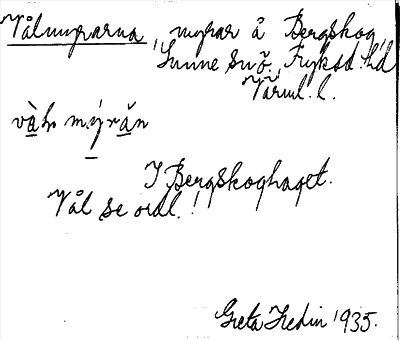 Vålmyrarna, myrar å Bergskog,
Sunne sn ö., Fryksd. hd
Värml. l.
I Bergskoghaget.
Vål se ordl.!
Greta Hedin 1935.